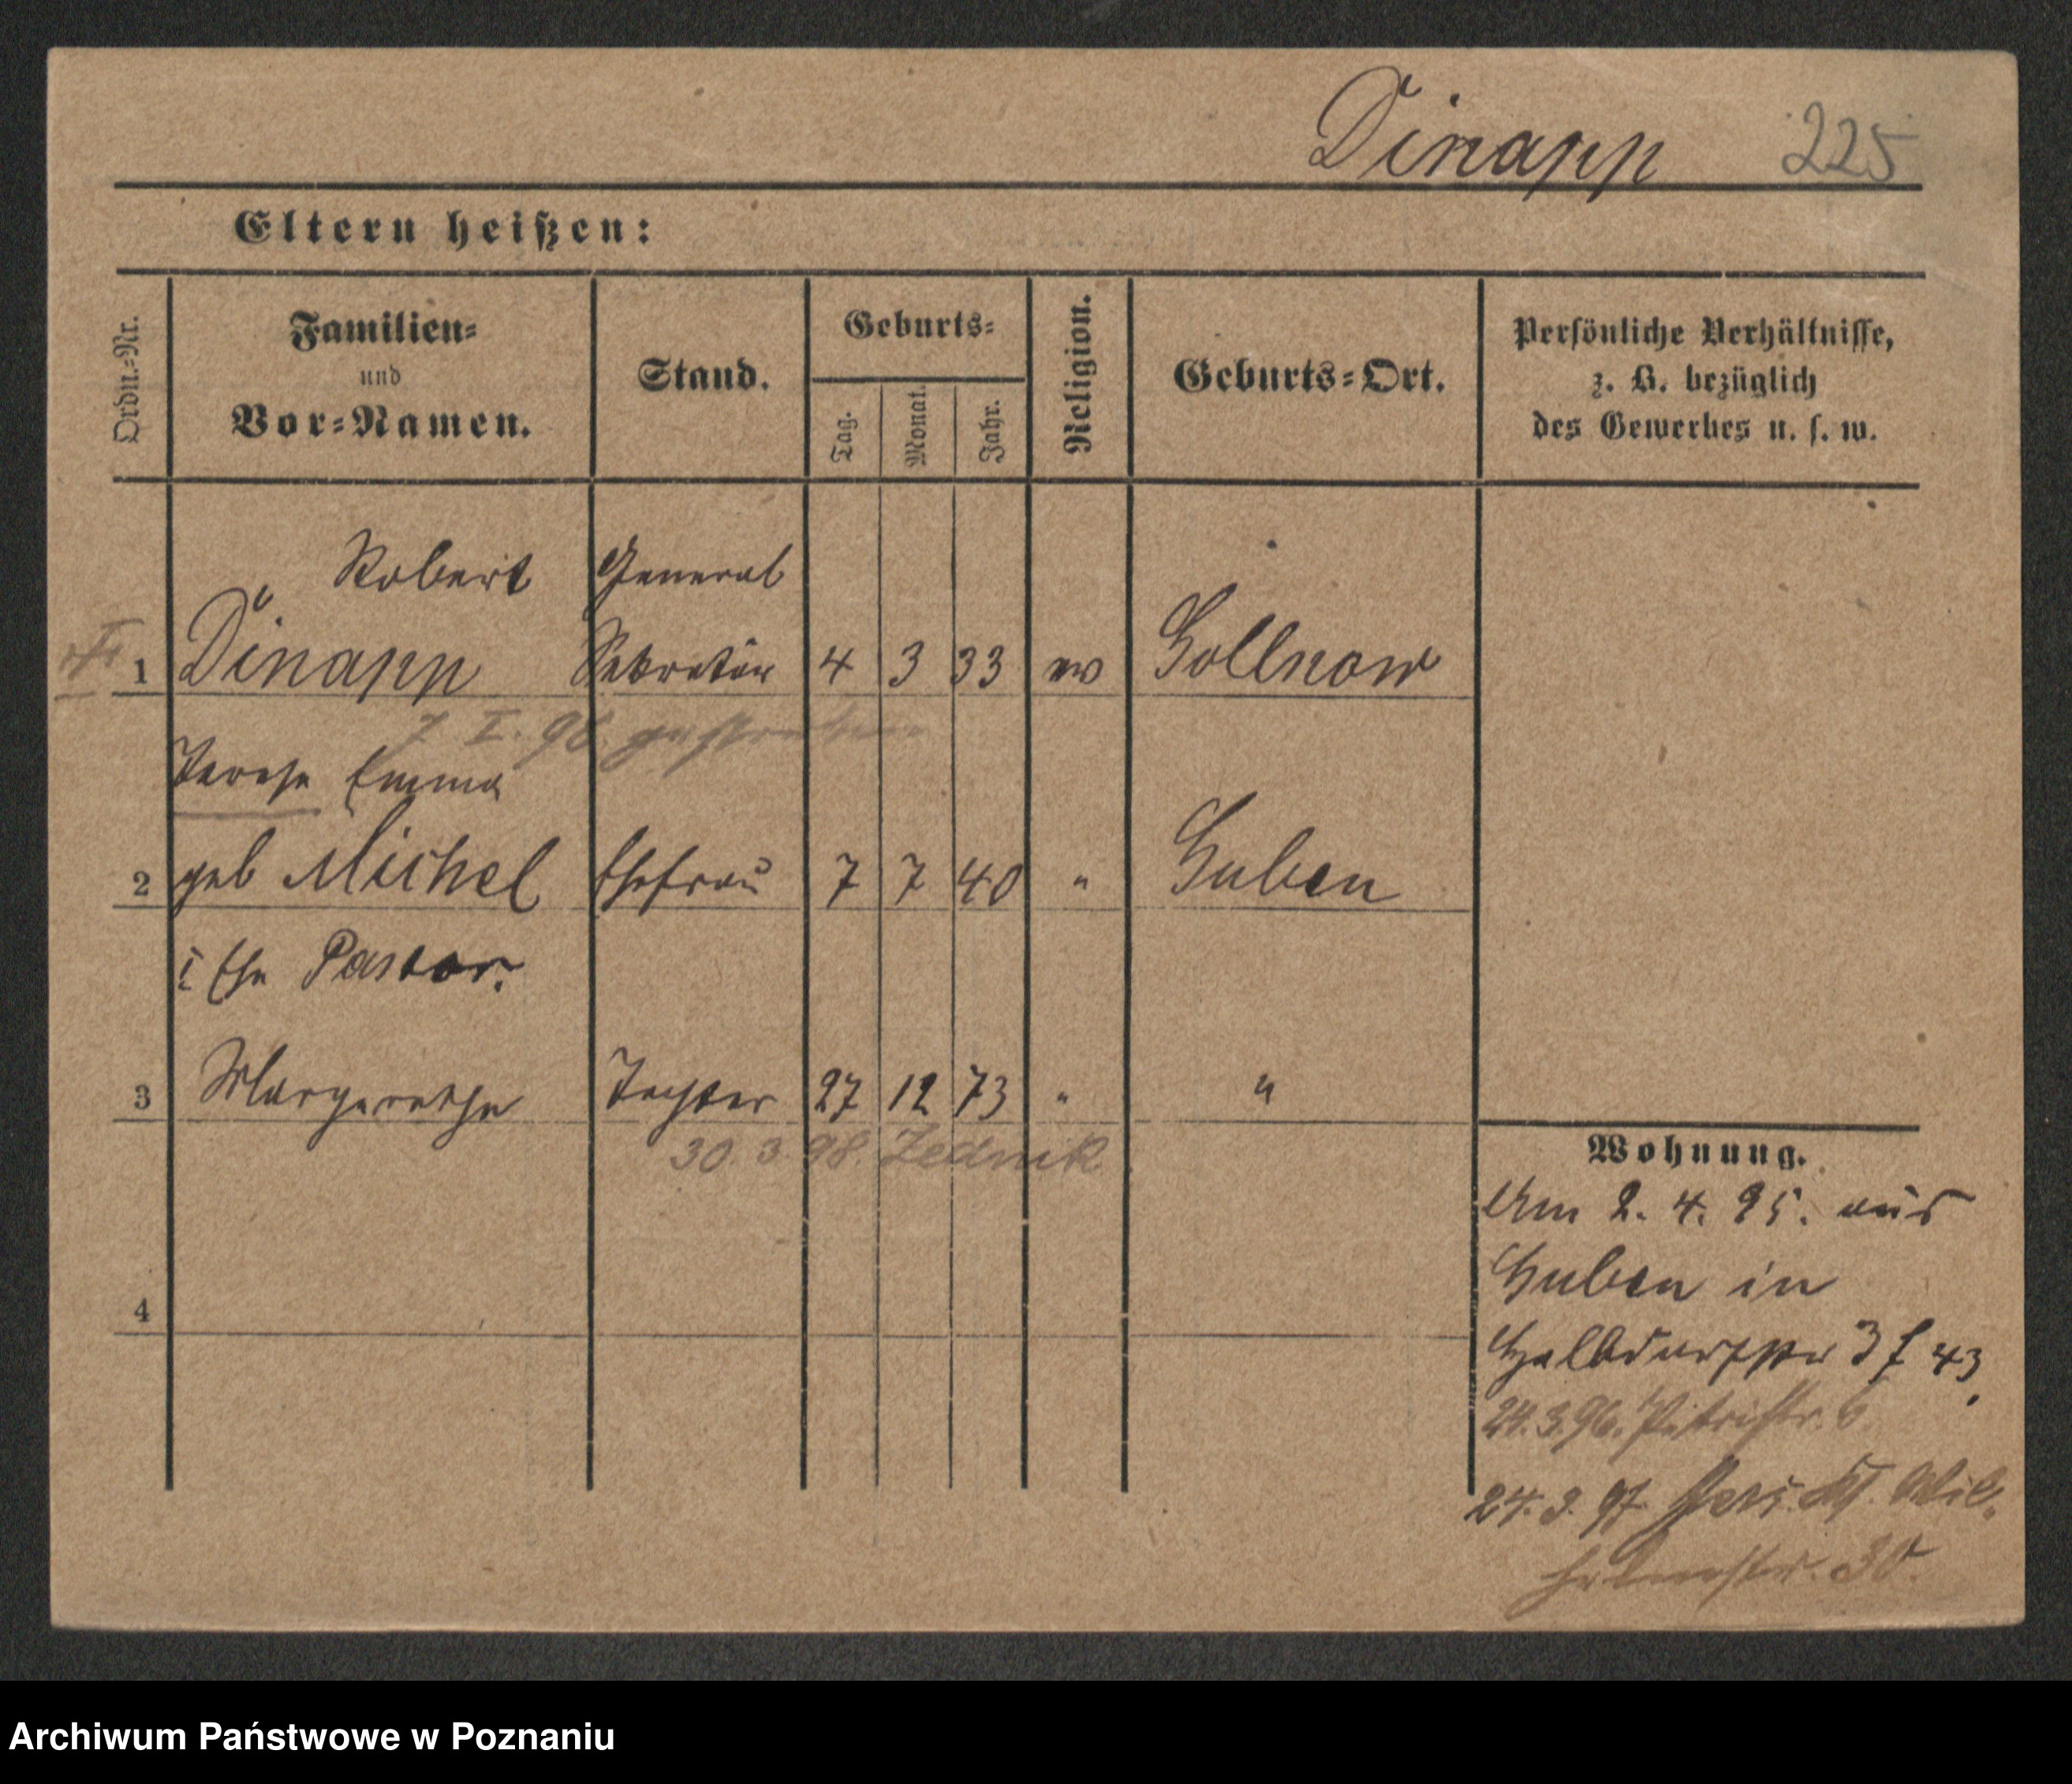 Dinapp 225
Eltern heißen:
Ordn.=Nr.
Familien=
und
Vor=Namen.
Stand.
Geburts=
Tag.
Monat.
Jahr.
Religion.
Geburts=Ort.
Persönliche Verhältnisse,
z. B. bezüglich
des Gewerbes u. s. w.
Robert General
1 Dinapp Sekretär 4 3 33 ev Gollnow
7 I. 98. gestorben
Terese Emma
2 geb Michel Ehefrau 7 7 40 " Guben
I Ehe Pastor.
3 Margarethe Tochter 27 12 73 " "
30. 3. 98. Zednik
4
Wohnung.
Am 2. 4. 95. aus
Guben in
Halbdorfstr 43
24.3.96. Petristr. 6
24. 3. 97. Wil-
helmstr. 30.
Archiwum Państwowe w Poznaniu